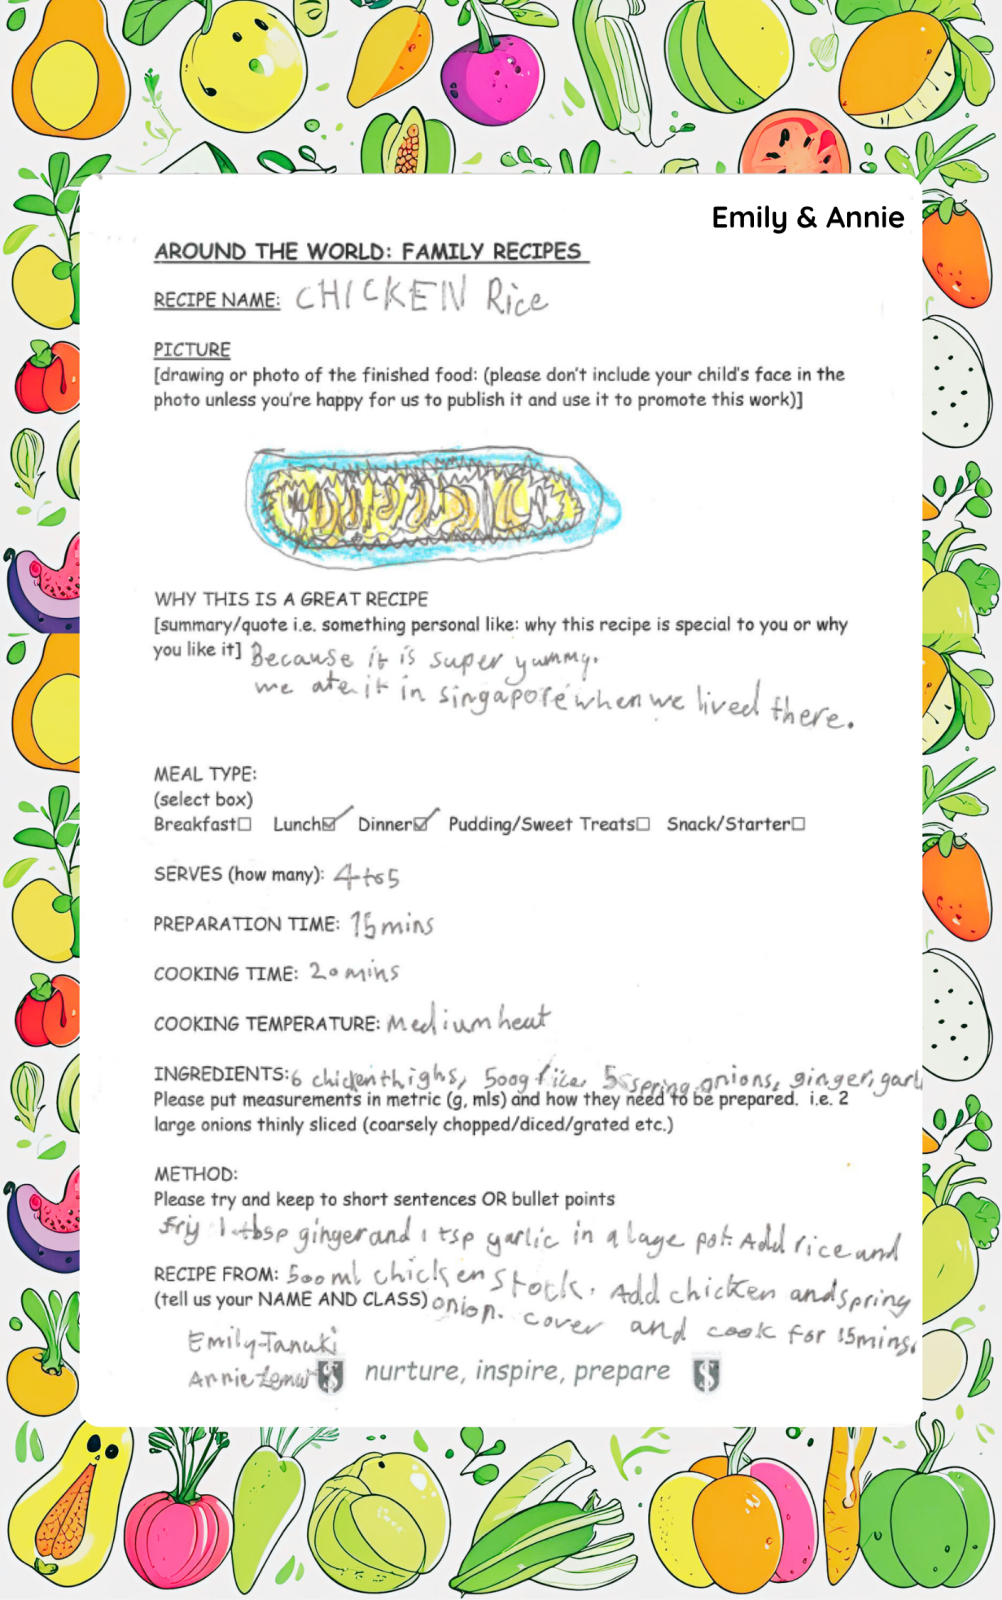 Emily & Annie
AROUND THE WORLD: FAMILY RECIPES
RECIPE NAME: CHICKEN Rice
PICTURE
[drawing or photo of the finished food: (please don't include your child's face in the
photo unless you're happy for us to publish it and use it to promote this work)]
WHY THIS IS A GREAT RECIPE
[summary/quote i.e. something personal like: why this recipe is special to you or why
you like it] Because it is super yummy.
we ate it in singapore when we lived there.
MEAL TYPE:
(select box)
Breakfast☐ Lunch☑ Dinner☑ Pudding/Sweet Treats☐ Snack/Starter☐
SERVES (how many): 4 to 5
PREPARATION TIME: 15 mins
COOKING TIME: 20 mins
COOKING TEMPERATURE: Medium heat
INGREDIENTS: 6 chicken thighs, 500g rice, 5 spring onions, ginger, garl
Please put measurements in metric (g, mls) and how they need to be prepared. i.e. 2
large onions thinly sliced (coarsely chopped/diced/grated etc.)
METHOD:
Please try and keep to short sentences OR bullet points
Fry 1 tbsp ginger and 1 tsp garlic in a lage pot. Add rice and
RECIPE FROM: 500ml chicken stock. Add chicken and spring
(tell us your NAME AND CLASS) onion. cover and cook for 15mins.
Emily-Tanuki
Annie
nurture, inspire, prepare